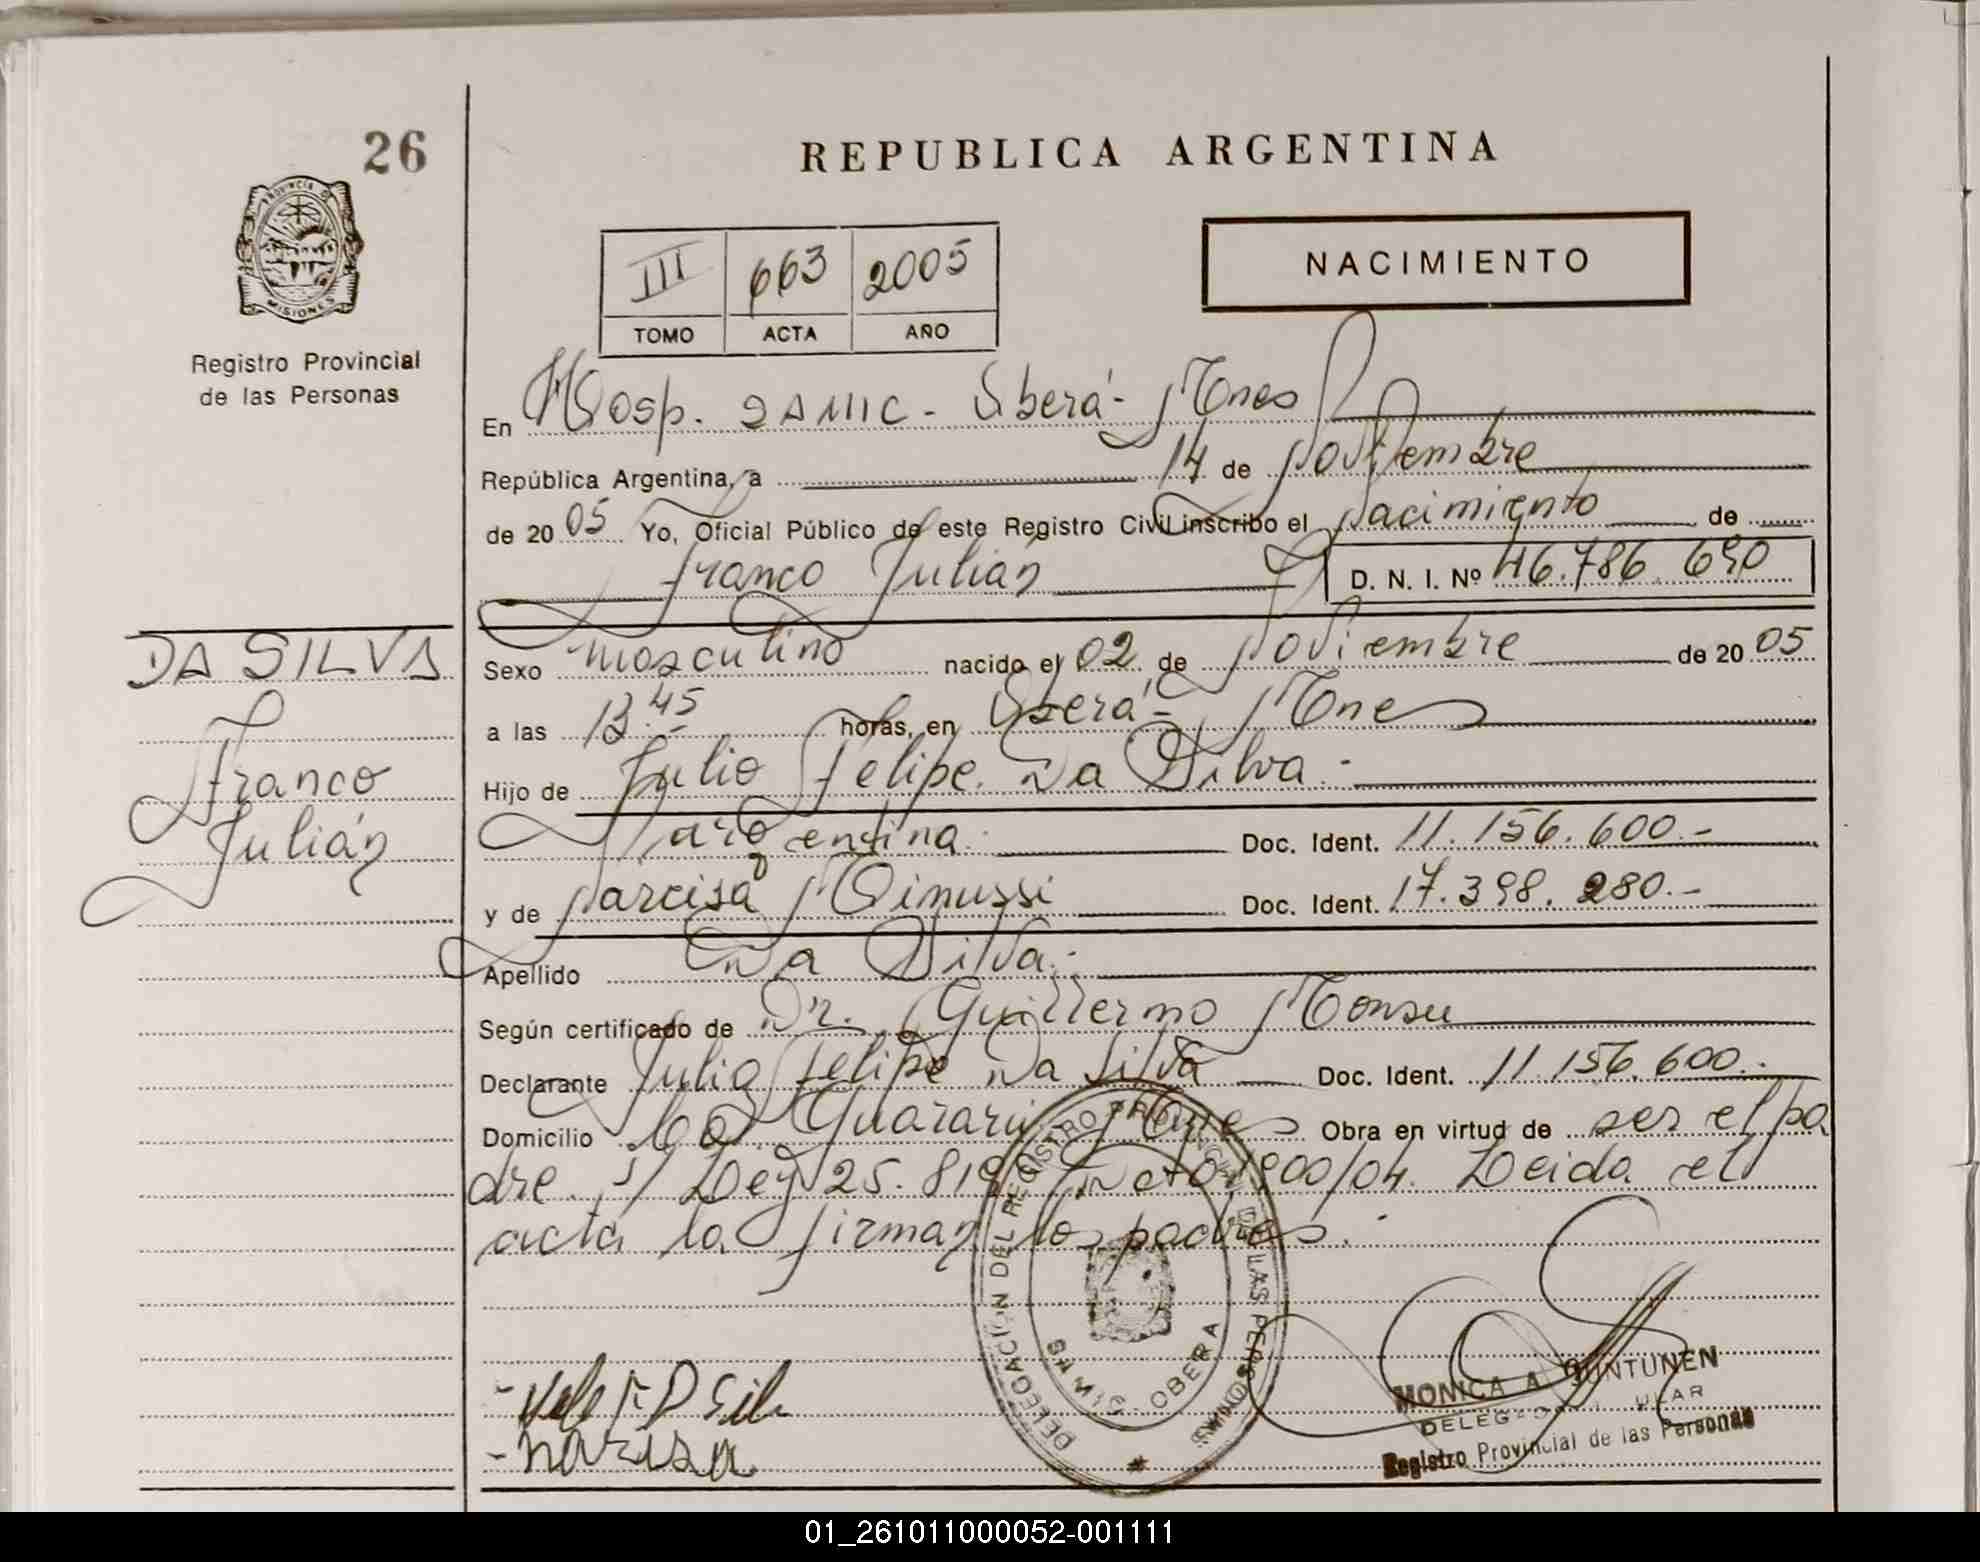 26
REPUBLICA ARGENTINA
PROVINCIA DE
MISIONES
Registro Provincial
de las Personas
III 663 2005
TOMO ACTA AÑO
NACIMIENTO
En Hosp. SAMIC - Oberá - Mnes
República Argentina, a 14 de Noviembre
de 20 05 Yo, Oficial Público de este Registro Civil inscribo el Nacimiento de
Franco Julián D. N. I. Nº 46.786.690
DA SILVA
Franco
Julián
Sexo masculino nacido el 02 de Noviembre de 20 05
a las 13.45 horas, en Oberá - Mnes
Hijo de Julio Felipe Da Silva.-
argentina. Doc. Ident. 11.156.600.-
y de Narcisa Doc. Ident. 17.398.280.-
Apellido Da Silva.-
Según certificado de Dr. Guillermo Monsu
Declarante Julio Felipe Da Silva Doc. Ident. 11.156.600.-
Domicilio Guaraní Mnes Obra en virtud de ser el pa
dre. s/ Ley 25.819 Dcto 1900/04. Leida el
acta la firman los padres.
DELEGACION DEL REGISTRO PROVINCIAL DE LAS PERSONAS
OBERA
narcisa
MONICA A.
Registro Provincial de las Personas
01_261011000052-001111